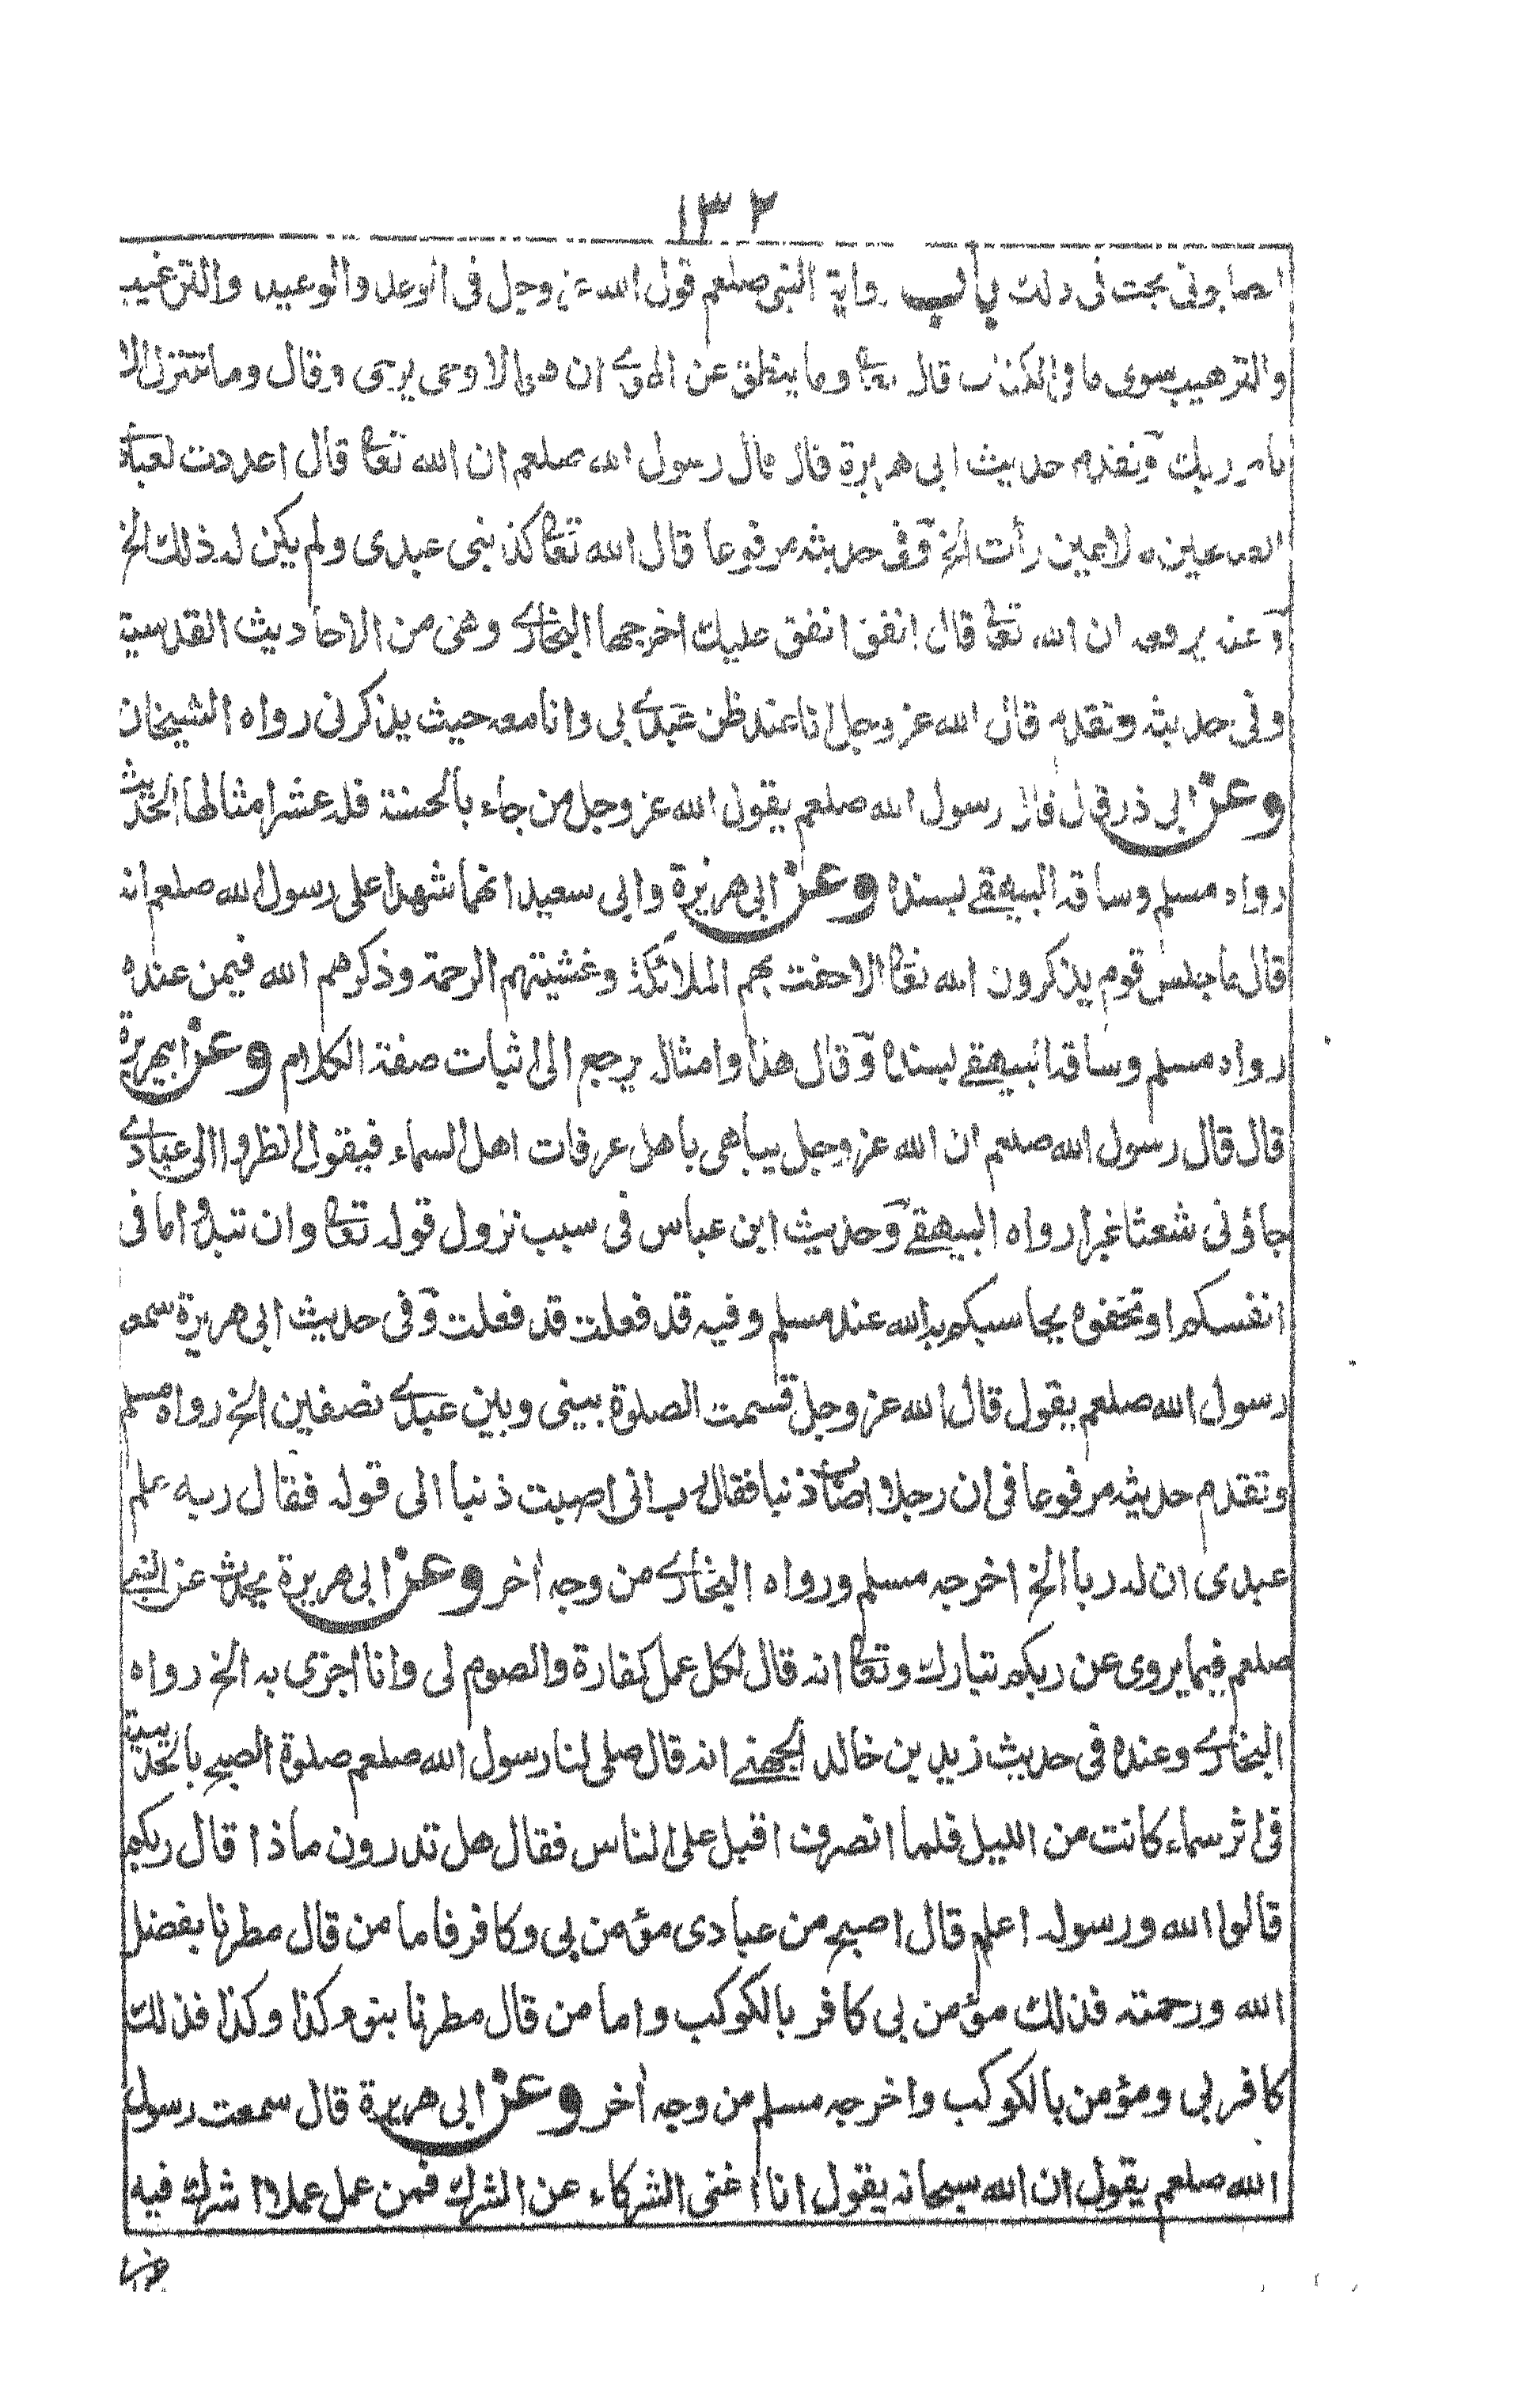 ١٣٢
في ذلك باب رواية النبي صلعم قول الله عز وجل في الوعد والوعيد والترغيب
والترهيب سوى ما في الكتاب قال تعا وما ينطق عن الهوى ان هو الا وحى يوحى وقال وما نتنزل الا
بامر ربك وتقدم حديث ابي هريرة قال قال رسول الله صلعم ان الله تعا قال اعددت لعبادى
الصالحين ما لا عين رأت الخ وفي حديثه مرفوعا قال الله تعا كذبنى عبدى ولم يكن له ذلك الخ
وعنه يرفعه ان الله تعا قال انفق انفق عليك اخرجها البخاري وهى من الاحاديث القدسية
وفي حديثه وتقدم قال الله عز وجل انا عند ظن عبدي بي وانا معه حيث يذكرنى رواه الشيخان
وعن ابي ذر قال قال رسول الله صلعم يقول الله عز وجل من جاء بالحسنة فله عشر امثالها الحديث
رواه مسلم وساقه البيهقے بسنده وعن ابي هريرة وابي سعيد انهما شهدا على رسول الله صلعم انه
قال ما جلس قوم يذكرون الله تعا الا حفت بهم الملائكة وغشيتهم الرحمة وذكرهم الله فيمن عنده
رواه مسلم وساقه البيهقے بسنده وقال هذا وامثاله يرجع الى اثبات صفة الكلام وعن ابيهريرة
قال قال رسول الله صلعم ان الله عز وجل يباهى باهل عرفات اهل السماء فيقول انظروا الى عبادي
جاؤنى شعثا غبرا رواه البيهقے وحديث ابن عباس في سبب نزول قوله تعا وان تبدوا ما في
انفسكم او تخفوه يحاسبكم به الله عند مسلم وفيه قد فعلت قد فعلت وفي حديث ابي هريرة سمعت
رسول الله صلعم يقول قال الله عز وجل قسمت الصلوة بينى وبين عبدي نصفين الخ رواه مسلم
وتقدم حديثه مرفوعا في ان رجلا اصاب ذنبا فقال رب انى اصبت ذنبا الى قوله فقال ربه علم
عبدى ان له ربا الخ اخرجه مسلم ورواه البخاري من وجه أخر وعن ابي هريرة يحدث عن النبي
صلعم فيما يروى عن ربكم تبارك وتعا انه قال لكل عمل كفارة والصوم لى وانا اجزى به الخ رواه
البخاري وعنده في حديث زيد بن خالد الجهنے انه قال صلى لنا رسول الله صلعم صلوة الصبح بالحديبية
في اثر سماء كانت من الليل فلما انصرف اقبل على الناس فقال هل تدرون ماذا قال ربكم
قالوا الله ورسوله اعلم قال اصبح من عبادى مؤمن بي وكافر فاما من قال مطرنا بفضل
الله ورحمته فذلك مؤمن بي كافر بالكوكب واما من قال مطرنا بنوء كذا وكذا فذلك
كافر بي ومؤمن بالكوكب واخرجه مسلم من وجه أخر وعن ابي هريرة قال سمعت رسول
الله صلعم يقول ان الله سبحانه يقول انا اغنى الشركاء عن الشرك فمن عمل عملا اشرك فيه